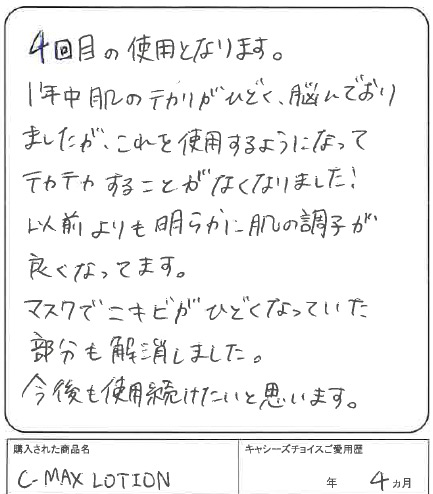 4回目の使用となります。
1年中肌のテカリがひどく、悩んでおり
ましたが、これを使用するようになって
テカテカすることがなくなりました！
以前よりも明らかに肌の調子が
良くなってます。
マスクでニキビがひどくなっていた
部分も解消しました。
今後も使用続けたいと思います。
購入された商品名
キャシーズチョイスご愛用歴
C-MAX LOTION
年 4ヵ月